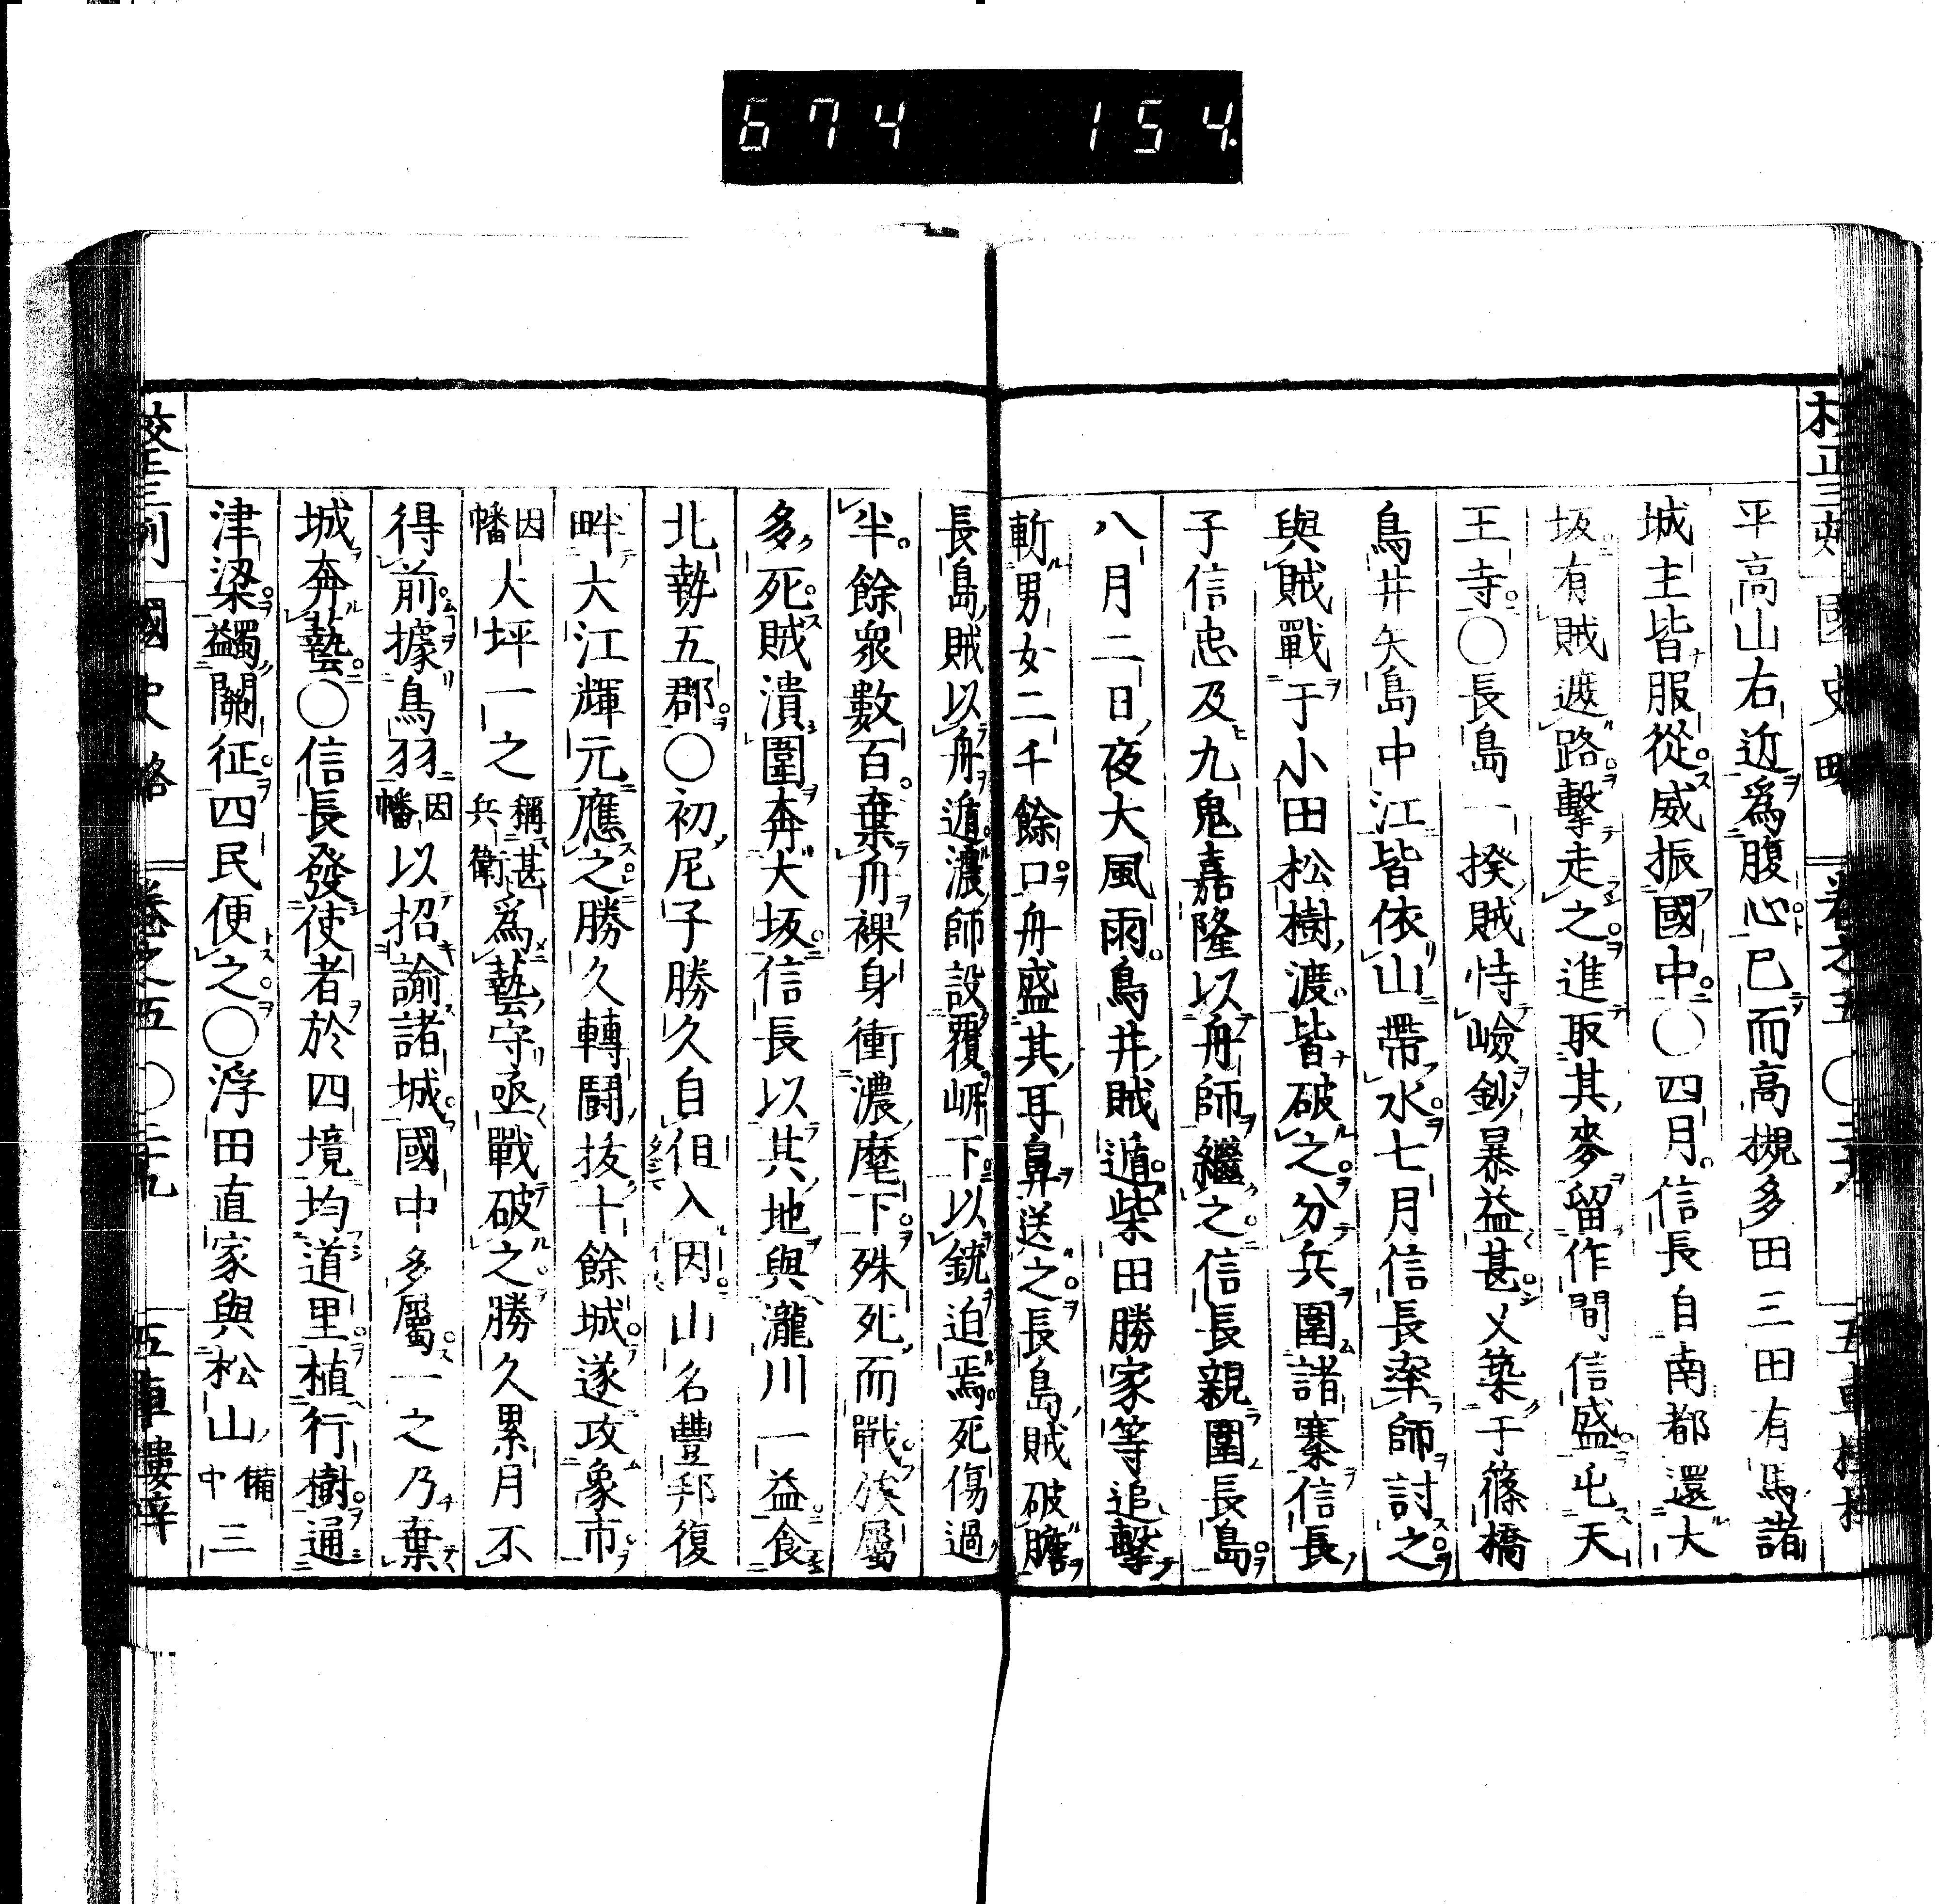 674 154.
平高山右近爲腹心已而高槻多田三田有馬諸
城主皆服從威振國中〇四月信長自南都還大
坂有賊遮路擊走之進取其麥留作間信盛屯天
王寺〇長島一揆賊恃嶮鈔暴益甚乂築于篠橋
鳥井矢島中江皆依山帶水七月信長率師討之
與賊戰于小田松樹渡皆破之分兵圍諸寨信長
子信忠及九鬼嘉隆以舟師繼之信長親圍長島
八月二日夜大風雨鳥井賊遁柴田勝家等追擊
斬男女二千餘口舟盛其耳鼻送之長島賊破膽
長島賊以舟遁濃師設覆崕下以銃迫焉死傷過
半餘衆數百棄舟裸身衝濃麾下殊死而戰族屬
多死賊潰圍奔大坂信長以其地與瀧川一益食
北勢五郡〇初尼子勝久自伹入因山名豐邦復
畔大江輝元應之勝久轉鬪拔十餘城遂攻象市
因幡大坪一之稱甚兵衛爲藝守亟戰破之勝久累月不
得前據鳥羽因幡以招諭諸城國中多屬一之乃棄
城奔藝〇信長發使者於四境均道里植行樹通
津梁蠲關征四民便之〇浮田直家與松山備中三